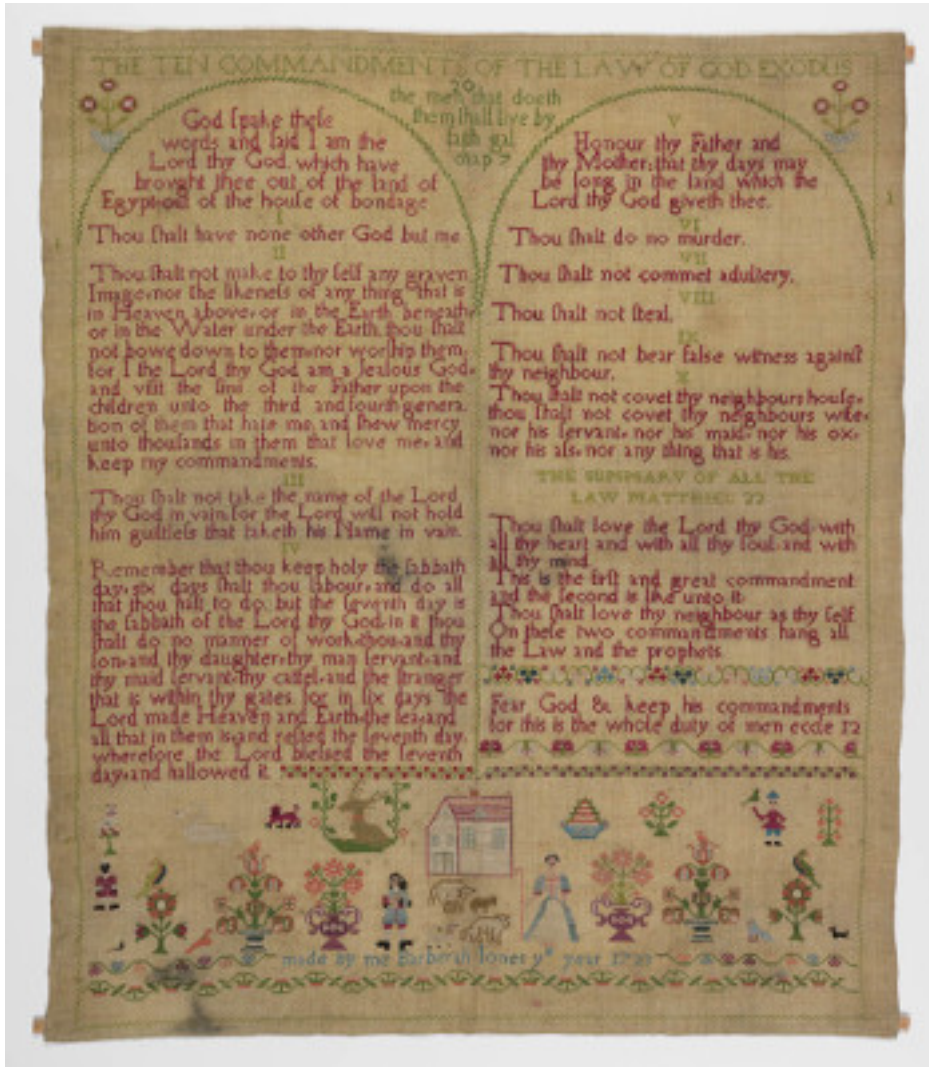 THE TEN COMMANDMENTS OF THE LAW OF GOD EXODUS
20
the men that doeth
them ſhall live by
faith gal
chap
God ſpake theſe
words and ſaid I am the
Lord thy God, which have
brought thee out of the land of
Egypt out of the houſe of bondage
I
Thou ſhalt have none other God but me
II
Thou ſhalt not make to thy ſelf any graven
Image nor the likeneſs of any thing that is
in Heaven above or in the Earth beneath
or in the Water under the Earth thou ſhalt
not bowe down to them nor worſhip them,
for I the Lord thy God am a Jealous God
and viſit the ſins of the Father upon the
children unto the third and fourth genera
tion of them that hate me, and ſhew mercy
unto thouſands in them that love me and
keep my commandments.
III
Thou ſhalt not take the name of the Lord
thy God in vain for the Lord will not hold
him guiltleſs that taketh his Name in vain.
IV
Remember that thou keep holy the ſabbath
day six days ſhalt thou labour and do all
that thou haſt to do, but the ſeventh day is
the ſabbath of the Lord thy God in it thou
ſhalt do no manner of work thou and thy
ſon and thy daughter thy man ſervant and
thy maid ſervant thy cattel and the ſtranger
that is within thy gates for in ſix days the
Lord made Heaven and Earth the ſea and
all that in them is and reſted the ſeventh day,
wherefore the Lord bleſsed the ſeventh
day and hallowed it
V
Honour thy Father and
thy Mother that thy days may
be long in the land which the
Lord thy God giveth thee.
VI
Thou ſhalt do no murder.
VII
Thou ſhalt not commet adultery.
VIII
Thou ſhalt not ſteal.
IX
Thou ſhalt not bear falſe witneſs againſt
thy neighbour.
X
Thou ſhalt not covet thy neighbours houſe
thou ſhalt not covet thy neighbours wife
nor his ſervant nor his maid nor his ox
nor his aſs nor any thing that is his.
THE SUMMARY OF ALL THE
LAW MATTHEU 22
Thou ſhalt love the Lord thy God with
all thy heart and with all thy ſoul and with
all thy mind
This is the firſt and great commandment
and the ſecond is like unto it
Thou ſhalt love thy neighbour as thy ſelf
On theſe two commandments hang all
the Law and the prophets
Fear God & keep his commandments
for this is the whole duty of men eccle 12
made by me Barberah Iones ye year